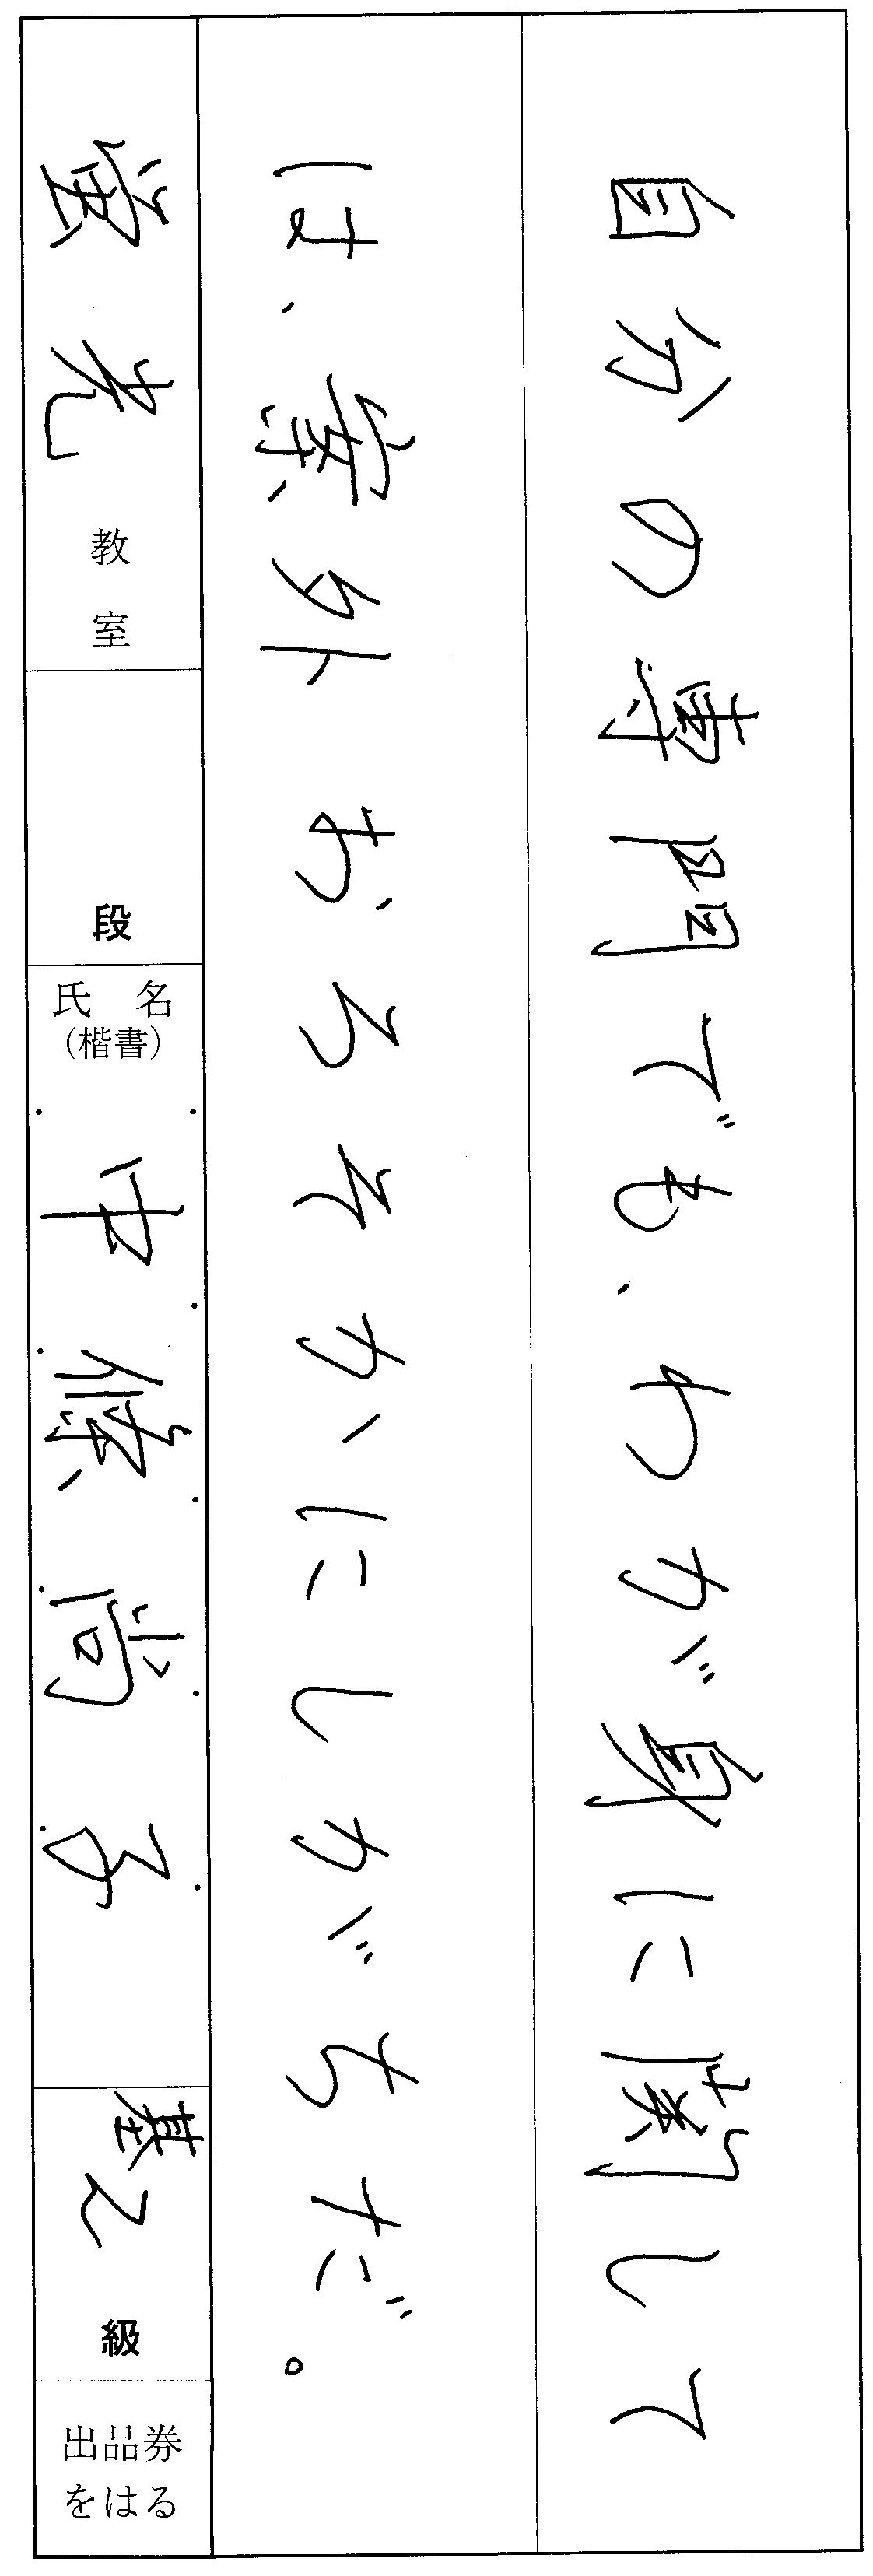 自分の専門でも、わが身に関して
は、案外おろそかにしがちだ。
蛍光教室
段
氏名
(楷書)
中條尚子
基乙級
出品券
をはる